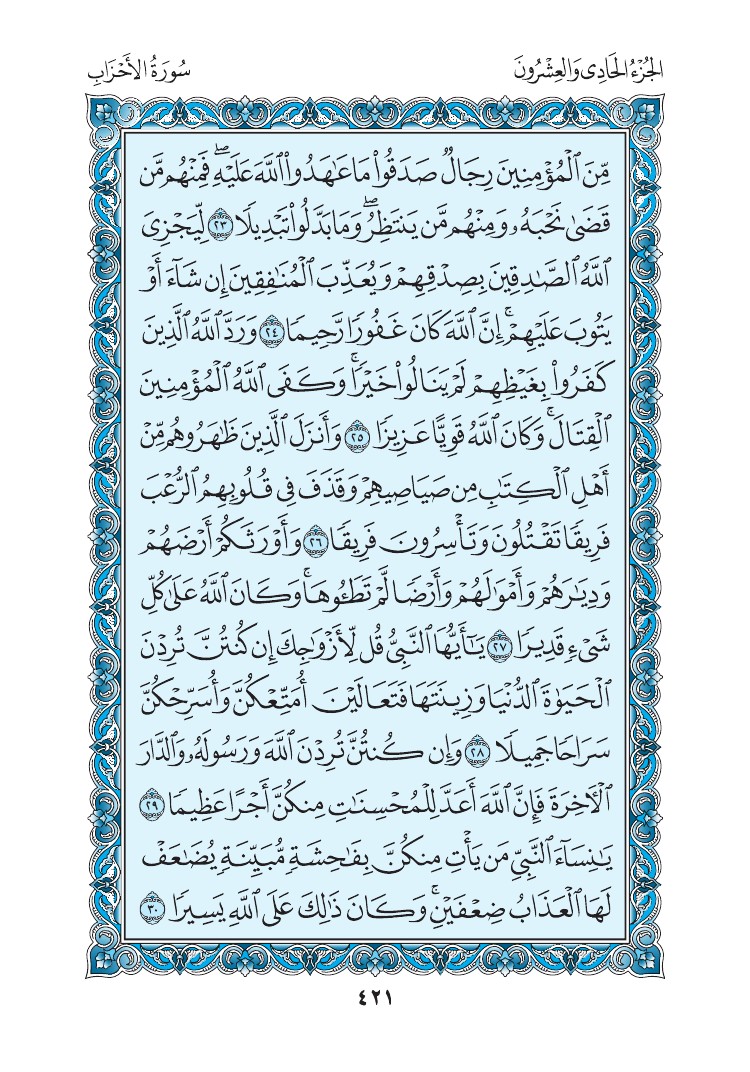 الجُزْءُ الحَادِي وَالعِشْرُونَ
سُورَةُ الأَحْزَابِ
مِّنَ ٱلْمُؤْمِنِينَ رِجَالٌ صَدَقُوا۟ مَا عَٰهَدُوا۟ ٱللَّهَ عَلَيْهِ ۖ فَمِنْهُم مَّن
قَضَىٰ نَحْبَهُۥ وَمِنْهُم مَّن يَنتَظِرُ ۖ وَمَا بَدَّلُوا۟ تَبْدِيلًا ٢٣ لِّيَجْزِىَ
ٱللَّهُ ٱلصَّٰدِقِينَ بِصِدْقِهِمْ وَيُعَذِّبَ ٱلْمُنَٰفِقِينَ إِن شَآءَ أَوْ
يَتُوبَ عَلَيْهِمْ ۚ إِنَّ ٱللَّهَ كَانَ غَفُورًا رَّحِيمًا ٢٤ وَرَدَّ ٱللَّهُ ٱلَّذِينَ
كَفَرُوا۟ بِغَيْظِهِمْ لَمْ يَنَالُوا۟ خَيْرًا ۚ وَكَفَى ٱللَّهُ ٱلْمُؤْمِنِينَ
ٱلْقِتَالَ ۚ وَكَانَ ٱللَّهُ قَوِيًّا عَزِيزًا ٢٥ وَأَنزَلَ ٱلَّذِينَ ظَٰهَرُوهُم مِّنْ
أَهْلِ ٱلْكِتَٰبِ مِن صَيَاصِيهِمْ وَقَذَفَ فِى قُلُوبِهِمُ ٱلرُّعْبَ
فَرِيقًا تَقْتُلُونَ وَتَأْسِرُونَ فَرِيقًا ٢٦ وَأَوْرَثَكُمْ أَرْضَهُمْ
وَدِيَٰرَهُمْ وَأَمْوَٰلَهُمْ وَأَرْضًا لَّمْ تَطَـُٔوهَا ۚ وَكَانَ ٱللَّهُ عَلَىٰ كُلِّ
شَىْءٍ قَدِيرًا ٢٧ يَٰٓأَيُّهَا ٱلنَّبِىُّ قُل لِّأَزْوَٰجِكَ إِن كُنتُنَّ تُرِدْنَ
ٱلْحَيَوٰةَ ٱلدُّنْيَا وَزِينَتَهَا فَتَعَالَيْنَ أُمَتِّعْكُنَّ وَأُسَرِّحْكُنَّ
سَرَاحًا جَمِيلًا ٢٨ وَإِن كُنتُنَّ تُرِدْنَ ٱللَّهَ وَرَسُولَهُۥ وَٱلدَّارَ
ٱلْءَاخِرَةَ فَإِنَّ ٱللَّهَ أَعَدَّ لِلْمُحْسِنَٰتِ مِنكُنَّ أَجْرًا عَظِيمًا ٢٩
يَٰنِسَآءَ ٱلنَّبِىِّ مَن يَأْتِ مِنكُنَّ بِفَٰحِشَةٍ مُّبَيِّنَةٍ يُضَٰعَفْ
لَهَا ٱلْعَذَابُ ضِعْفَيْنِ ۚ وَكَانَ ذَٰلِكَ عَلَى ٱللَّهِ يَسِيرًا ٣٠
٤٢١